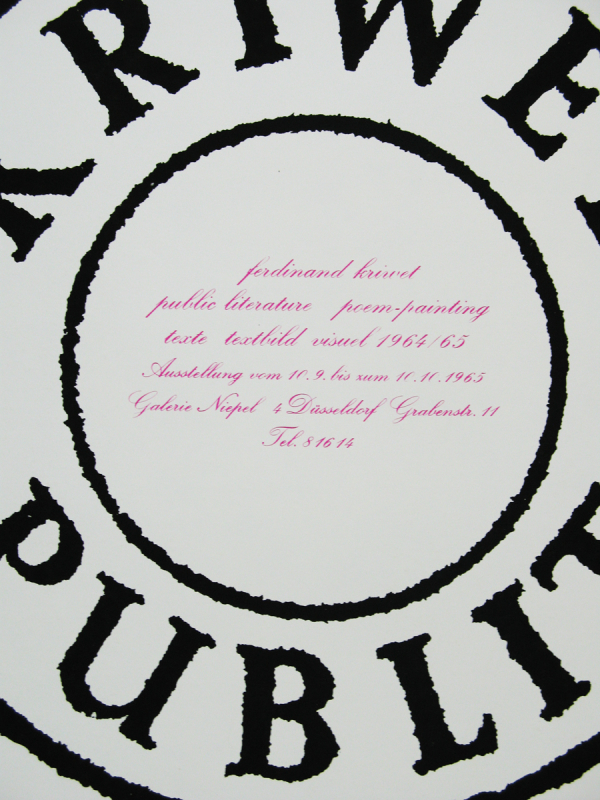 KRIWET
ferdinand kriwet
public literature poem-painting
texte textbild visuel 1964/65
Ausstellung vom 10.9. bis zum 10.10.1965
Galerie Niepel 4 Düsseldorf Grabenstr. 11
Tel. 81614
PUBLIT